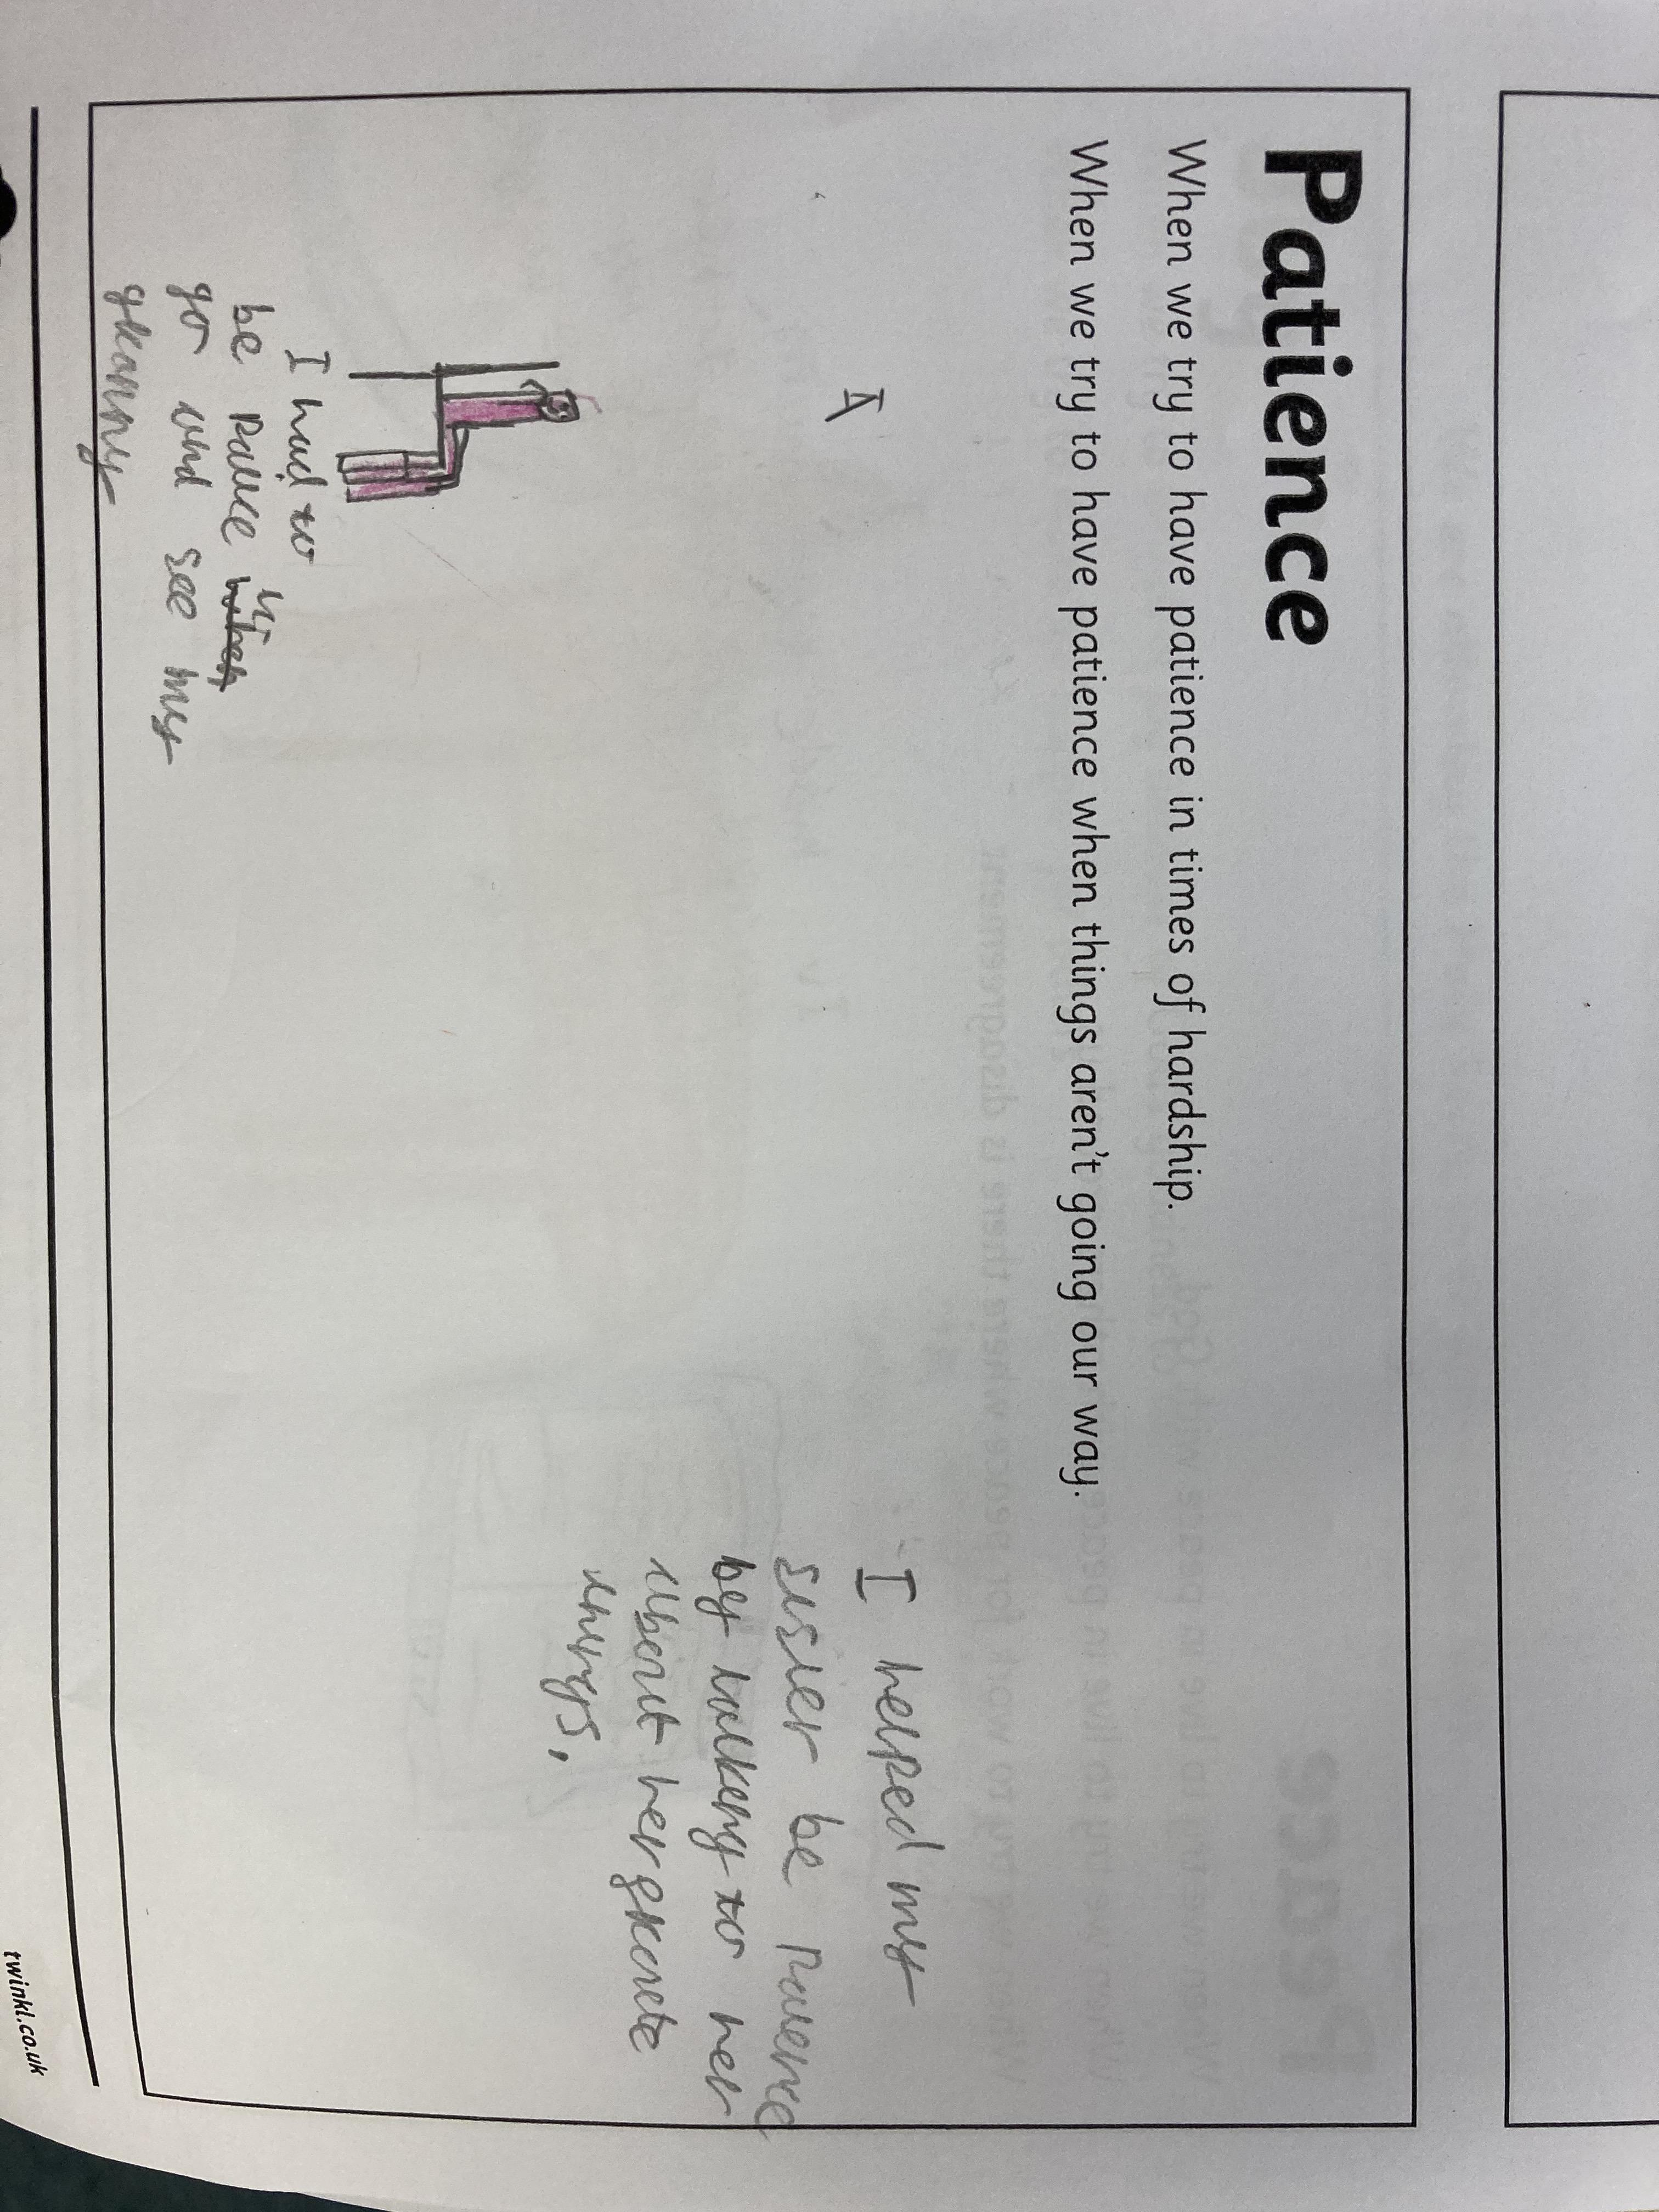 Patience
When we try to have patience in times of hardship.
When we try to have patience when things aren't going our way.
I
I helped my
sister be Patience
by talking to her
about her favorite
things.
I had to
be
go and see my
granny
twinkl.co.uk